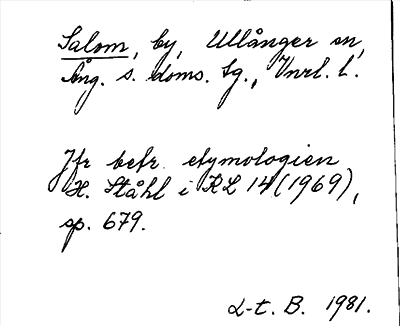 Salom, by, Ullånger sn,
Ång. s. doms. sg., Vnrl. l.
Jfr betr. etymologien
H. Ståhl i KL 14 (1969),
sp. 679.
L-t. B. 1981.